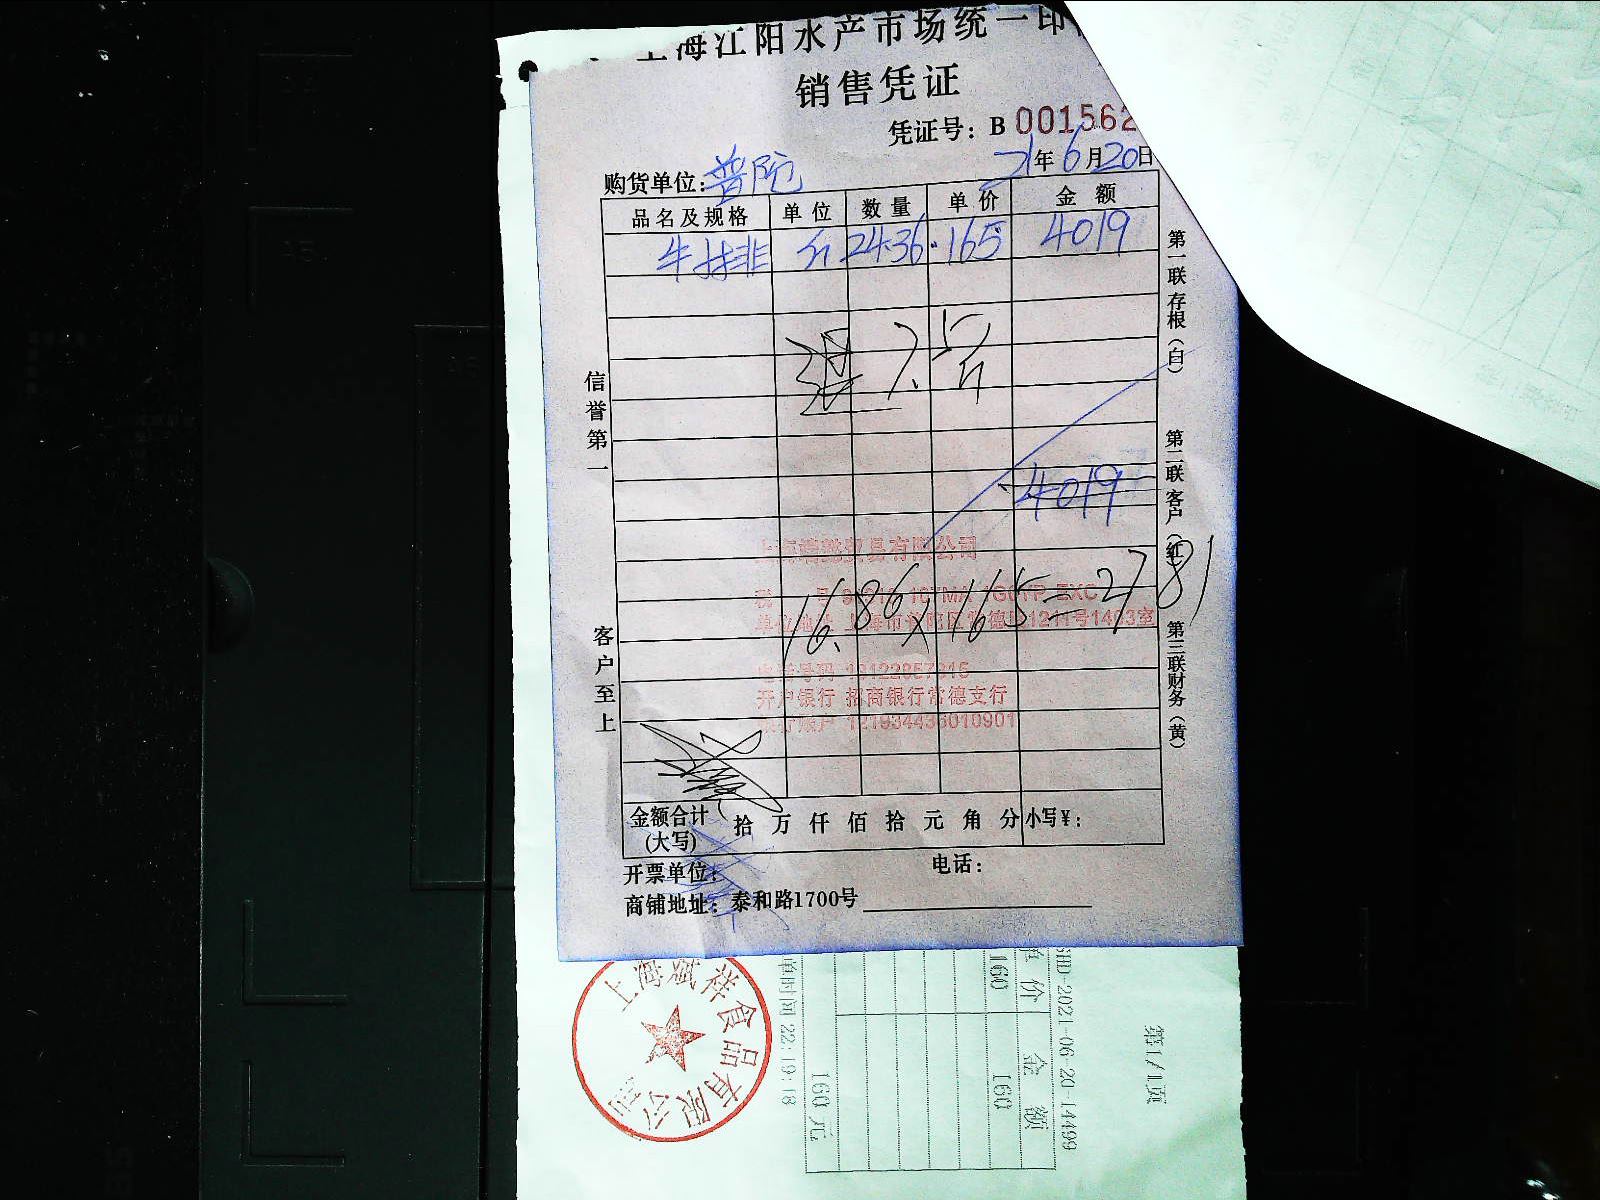 上海江阳水产市场统一印
销售凭证
凭证号：B 001562
21年6月20日
购货单位：普陀
品名及规格 单位 数量 单价 金额
牛排 斤 24.36 165 4019
退 7.5斤
4019
上海 贸易有限公司
16.86×165=2781
税号
单位地址 上海市普陀区常德路1211号1403室
电话号码
开户银行 招商银行常德支行
银行账户 121934436010901
金额合计(大写) 拾 万 仟 佰 拾 元 角 分 小写¥：
开票单位：
电话：
商铺地址：泰和路1700号
信誉第一
客户至上
第一联存根（白）
第二联客户（红）
第三联财务（黄）
第1/1页
SHD-2021-06-20-14499
单价 金额
160 160
160元
单时间 22:19:18
上海 祥食品有限公司